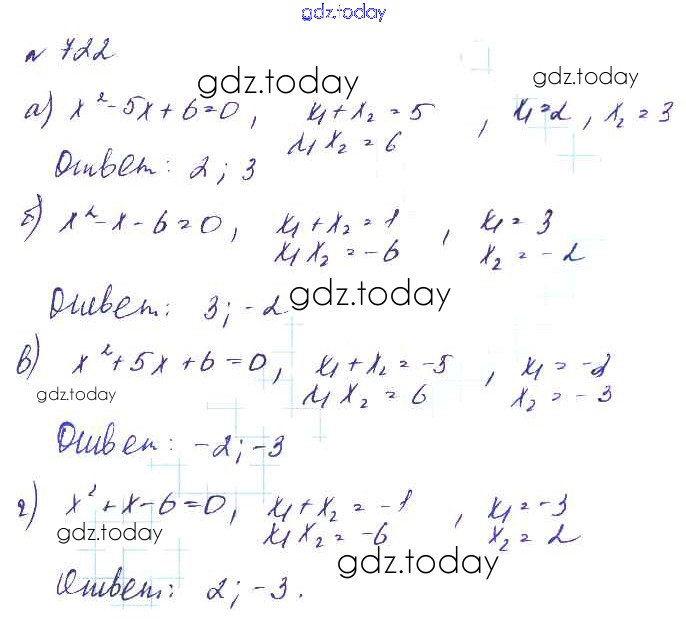 gdz.today
N 722
gdz.today gdz.today
а) x² - 5x + 6 = 0, x₁ + x₂ = 5, x₁ = 2, x₂ = 3
x₁ x₂ = 6
Ответ: 2; 3
б) x² - x - 6 = 0, x₁ + x₂ = 1, x₁ = 3
x₁ x₂ = -6 x₂ = -2
Ответ: 3; -2
gdz.today
в) x² + 5x + 6 = 0, x₁ + x₂ = -5, x₁ = -2
gdz.today x₁ x₂ = 6 x₂ = -3
Ответ: -2; -3
г) x² + x - 6 = 0, x₁ + x₂ = -1, x₁ = -3
gdz.today x₁ x₂ = -6 x₂ = 2
gdz.today
Ответ: 2; -3.